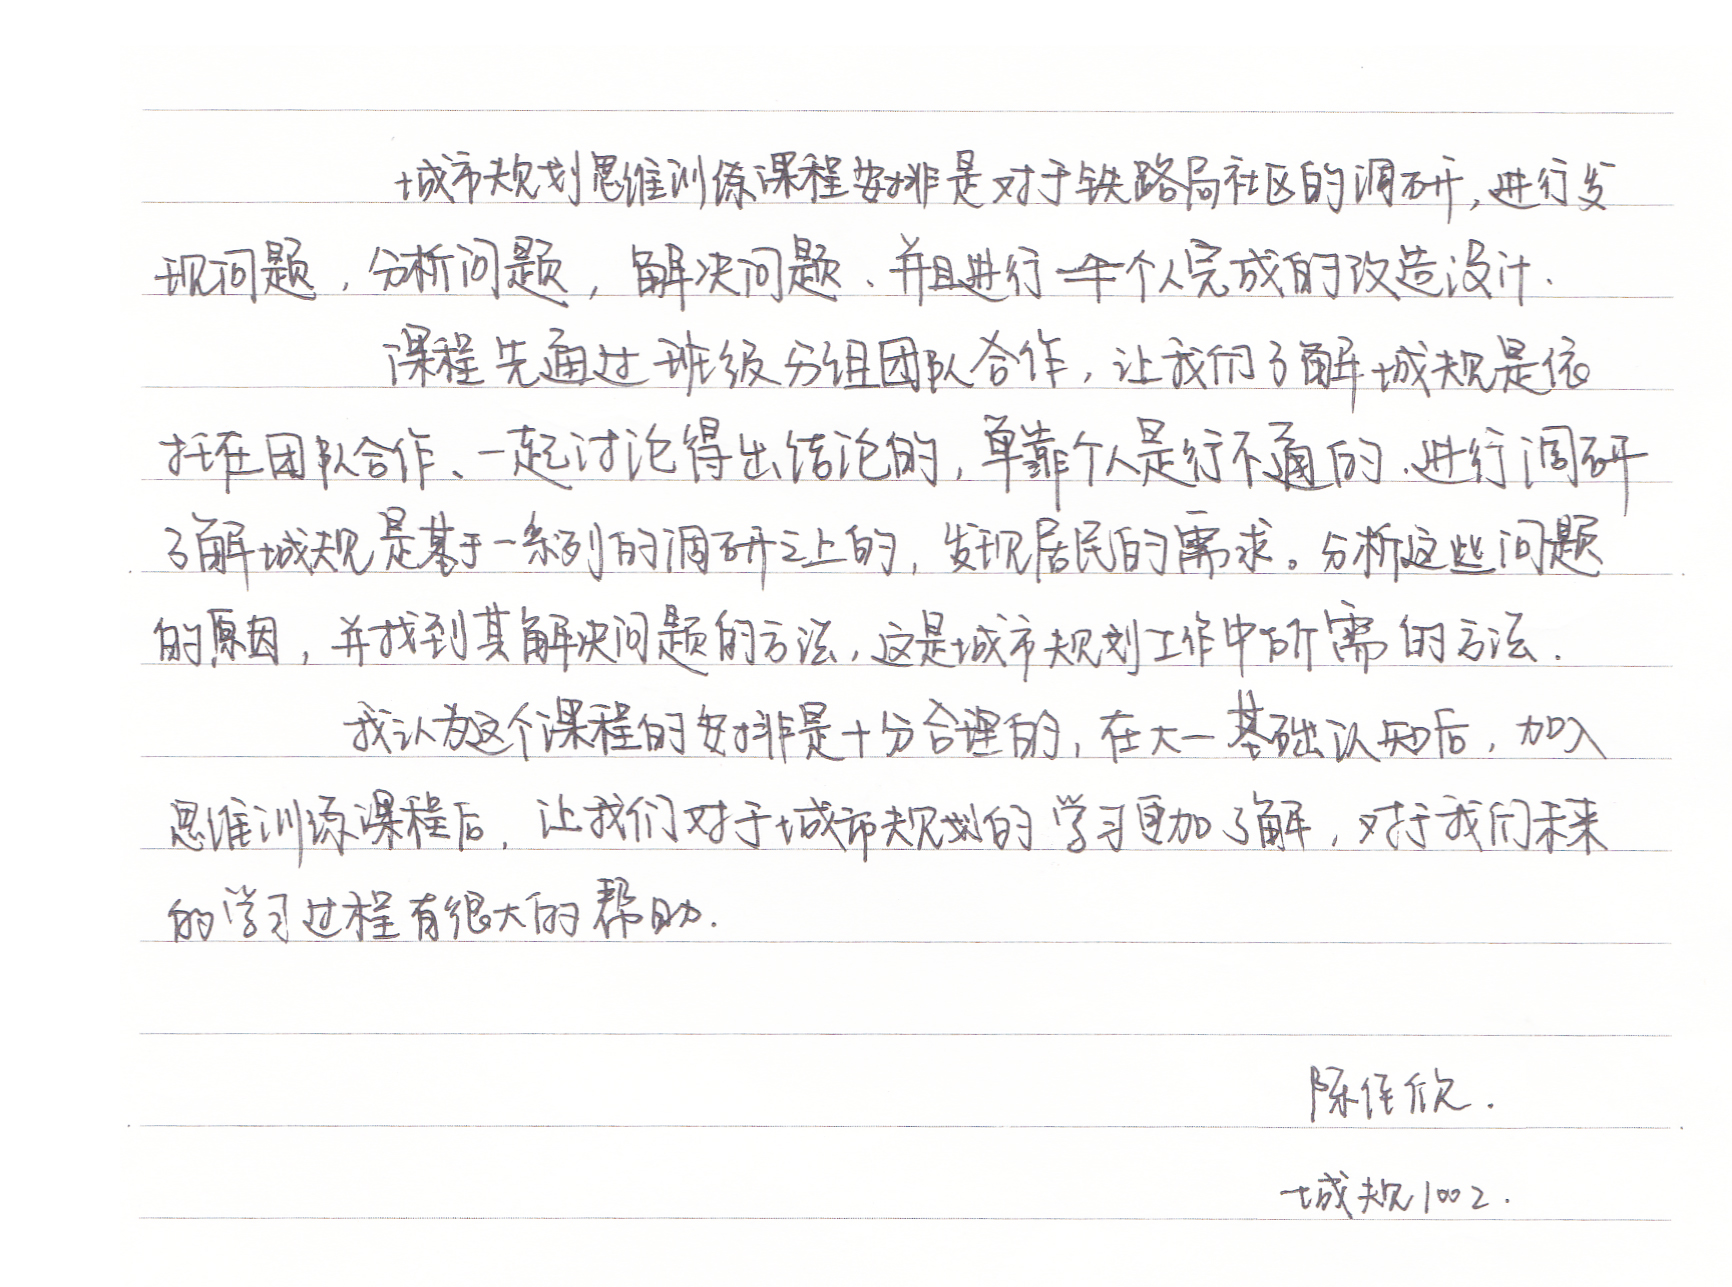 城市规划思维训练课程安排是对于铁路局社区的调研,进行发
现问题,分析问题,解决问题、并且进行个人完成的改造设计.
课程先通过班级分组团队合作,让我们了解城规是依
托在团队合作、一起讨论得出结论的,单靠个人是行不通的.进行调研
了解城规是基于一系列的调研之上的,发现居民的需求。分析这些问题
的原因,并找到其解决问题的方法,这是城市规划工作中所需的方法.
我认为这个课程的安排是十分合理的,在大一基础认知后,加入
思维训练课程后,让我们对于城市规划的学习更加了解,对于我们未来
的学习过程有很大的帮助.
陈佳欣.
城规1002.